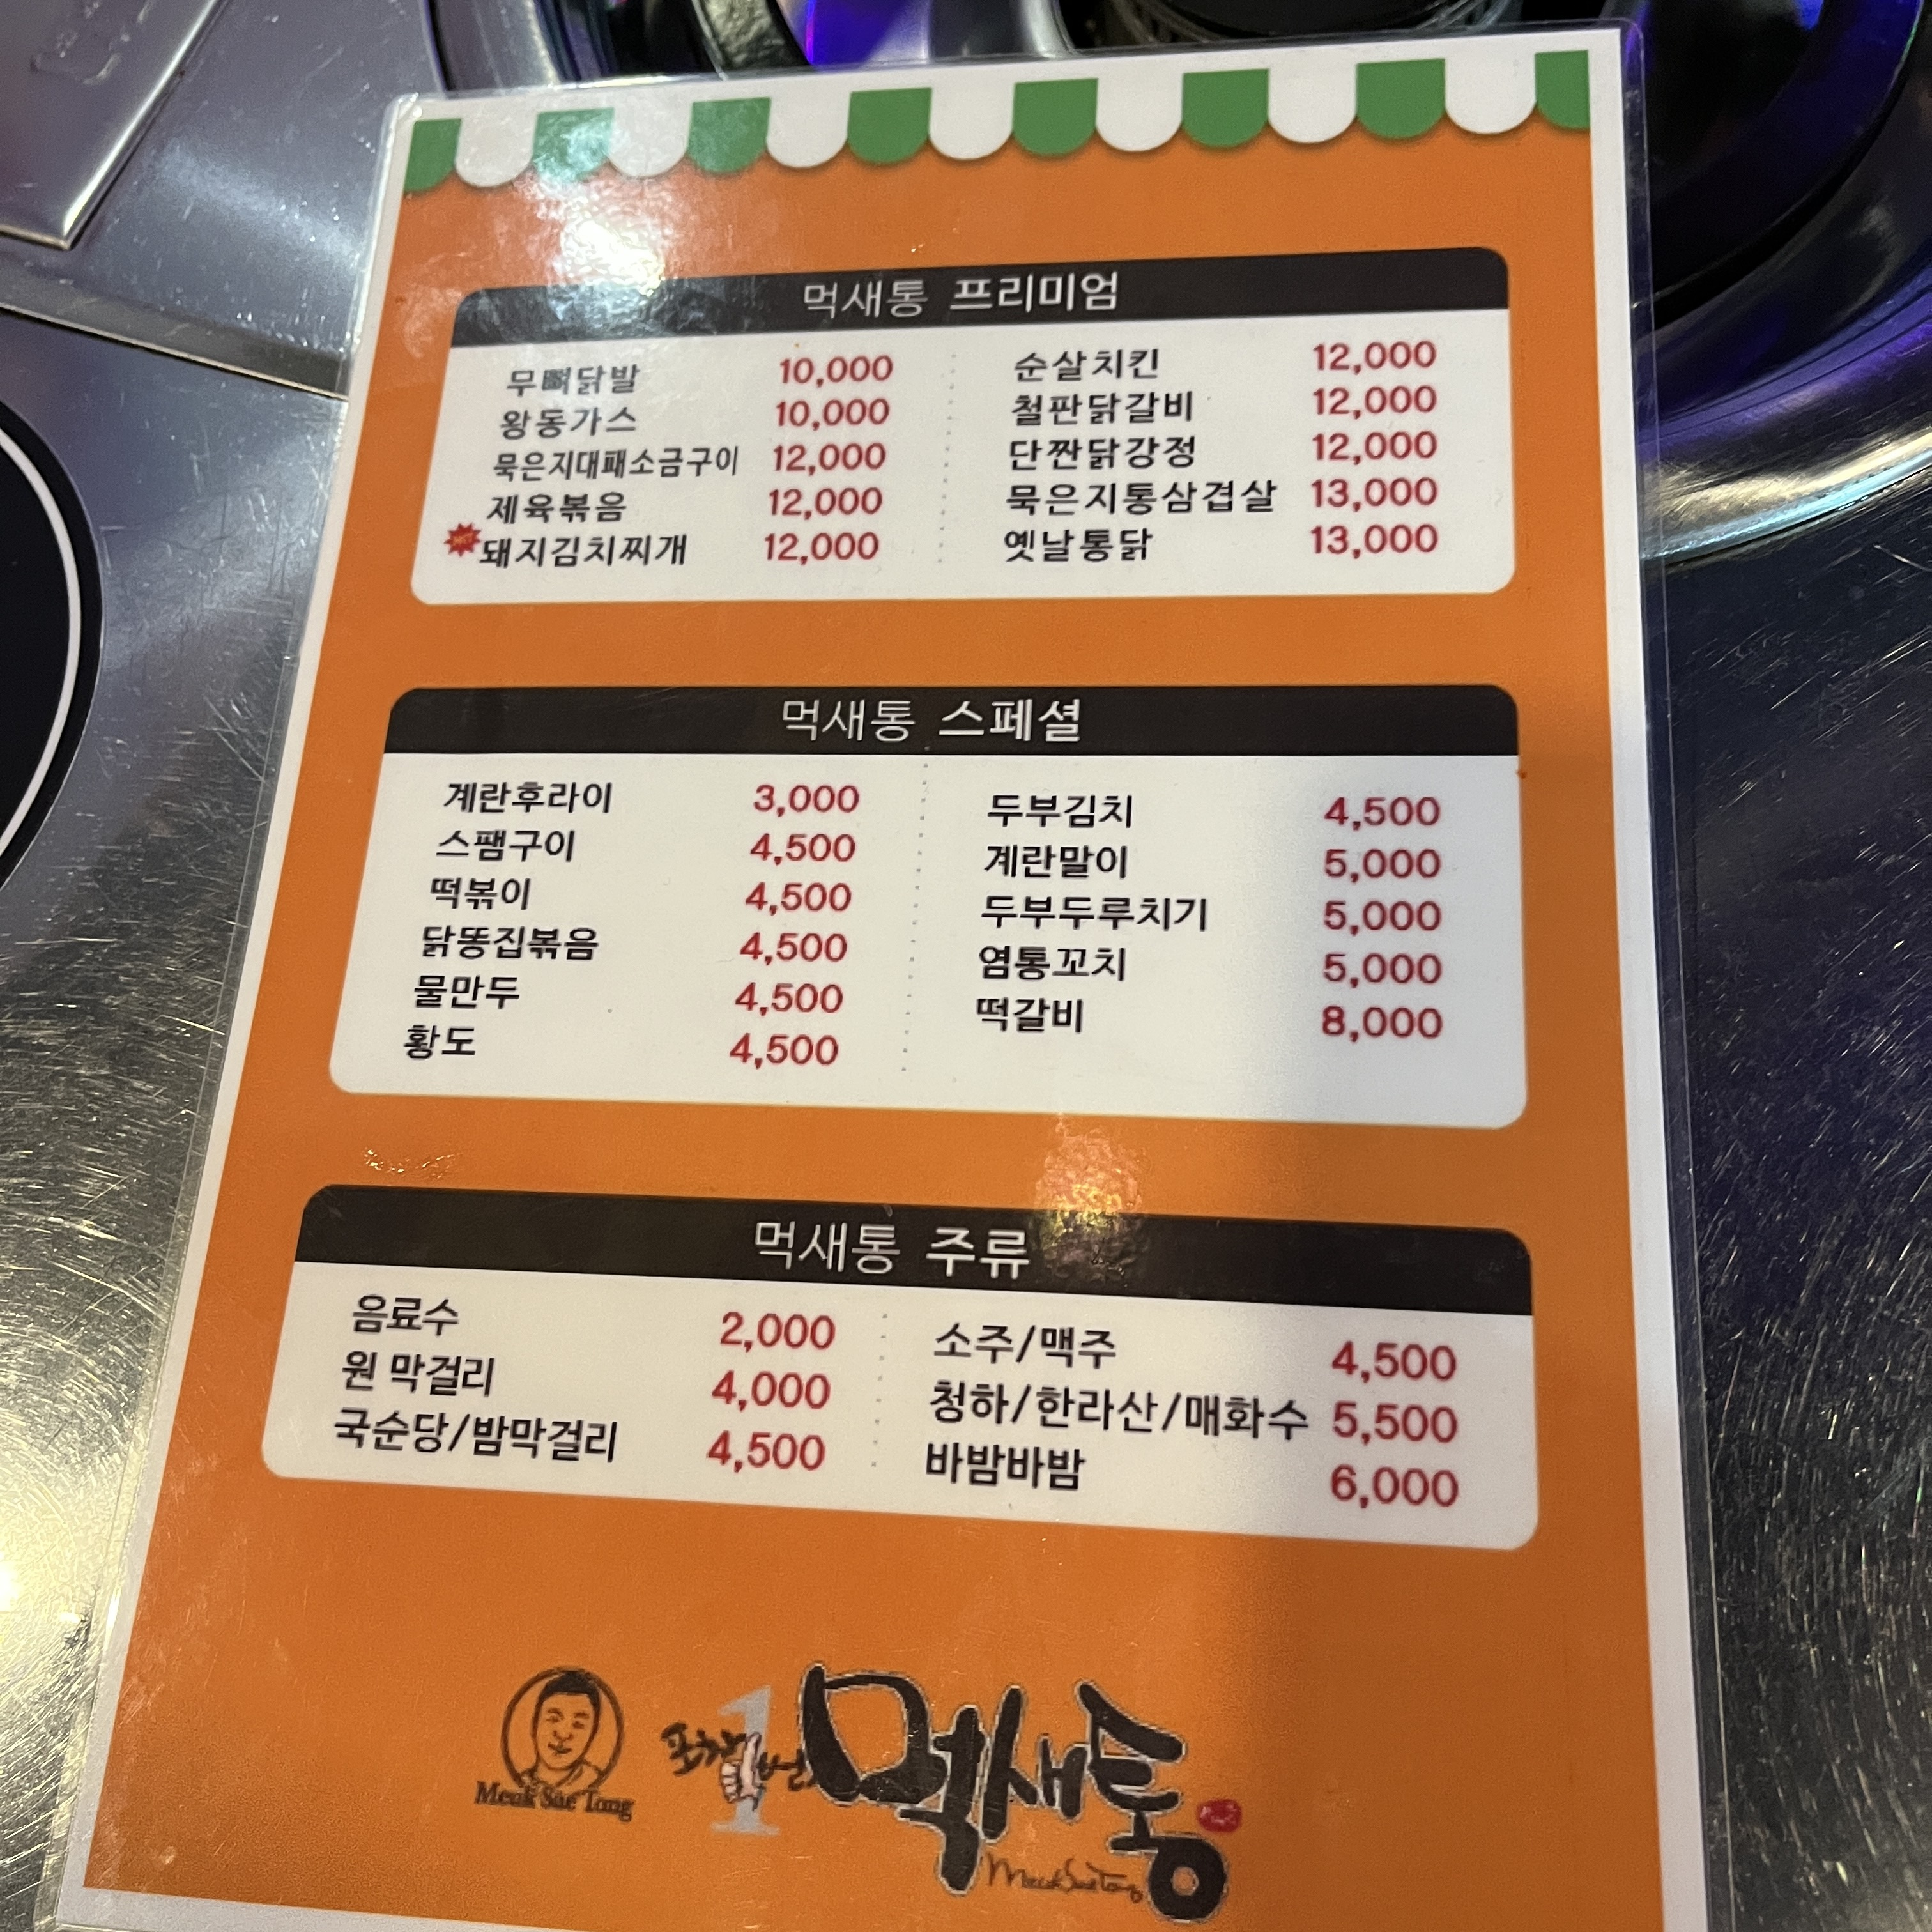 먹새통 프리미엄
무뼈닭발 10,000
왕동가스 10,000
묵은지대패소금구이 12,000
제육볶음 12,000
돼지김치찌개 12,000
순살치킨 12,000
철판닭갈비 12,000
단짠닭강정 12,000
묵은지통삼겹살 13,000
옛날통닭 13,000
먹새통 스페셜
계란후라이 3,000
스팸구이 4,500
떡볶이 4,500
닭똥집볶음 4,500
물만두 4,500
황도 4,500
두부김치 4,500
계란말이 5,000
두부두루치기 5,000
염통꼬치 5,000
떡갈비 8,000
먹새통 주류
음료수 2,000
원 막걸리 4,000
국순당/밤막걸리 4,500
소주/맥주 4,500
청하/한라산/매화수 5,500
바밤바밤 6,000
Meuk Sae Tong
포차 1 번지 먹새통
MeukSaeTong